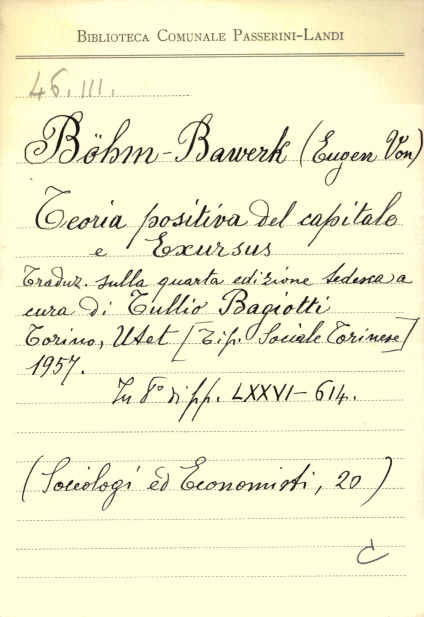 BIBLIOTECA COMUNALE PASSERINI-LANDI
46.III.
Böhm-Bawerk (Eugen Von)
Teoria positiva del capitale
e Exursus
Traduz. sulla quarta edizione tedesca a
cura di Tullio Bagiotti
Torino, Utet [Tip. Sociale Torinese]
1957.
In 8° di pp. LXXVI-614.
(Sociologi ed Economisti, 20)
C